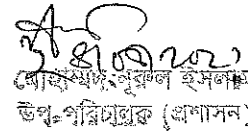 মোহাম্মদ নুরুল ইসলাম
উপ-পরিচালক (প্রশাসন)